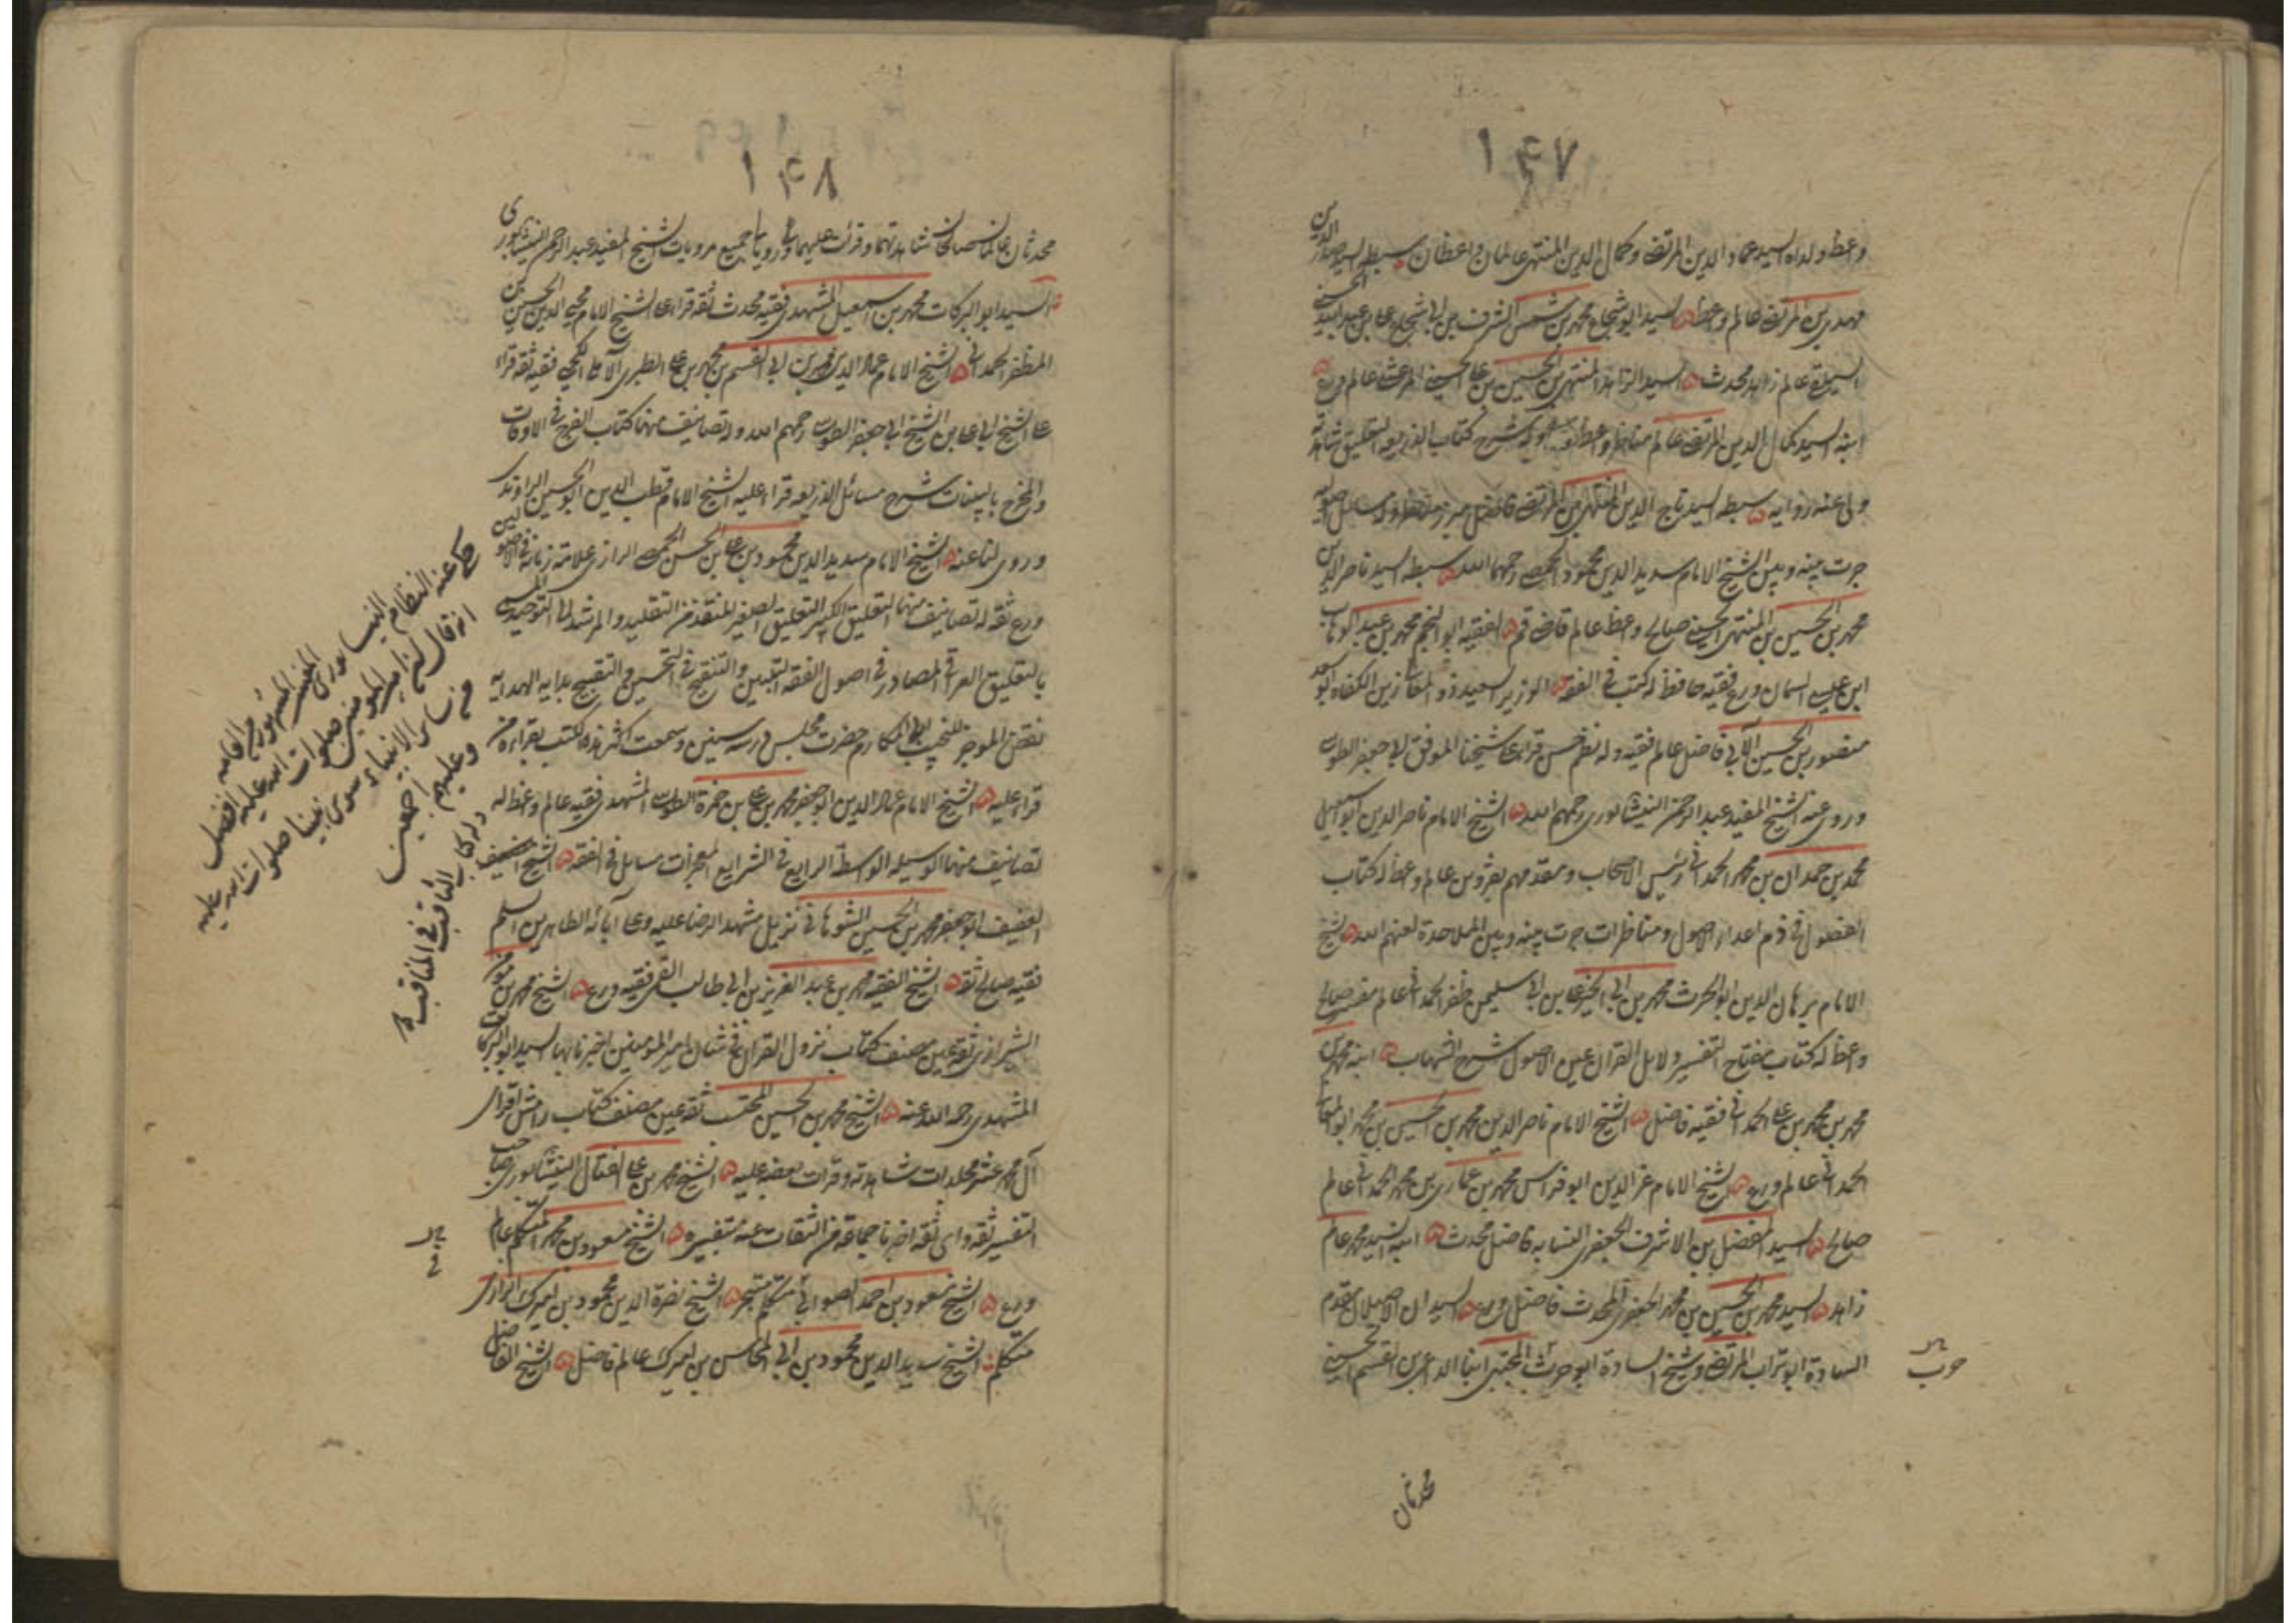 ١٤٧
وعظ ولداه السيد عماد الدين المرتضى وكمال الدين المنتهى عالمان واعظان سبطه السيد صدر الدين
مهدى بن المرتضى عالم واعظ السيد ابو شجاع محمد بن شمس الشرف بن ابى شجاع على بن عبد الله الحسنى
السيلقى عالم زاهد محدث السيد الزاهد المنتهى بن الحسين بن على الحسينى المرعشى عالم ورع
ابنه السيد كمال الدين المرتضى عالم مناظر واعظ وله شرح كتاب الذريعه التعليق شاهدته
ولى عنه رواية سبطه السيد تاج الدين المنتهى بن المرتضى فاضل مبرز مناظر وله مسائل اصوليه
جرت بينه وبين الشيخ الامام سديد الدين محمود الحمصى رحمهما الله سبطه السيد ناصر الدين
محمد بن الحسين بن المنتهى الحسينى صالح واعظ عالم قاضى قم الفقيه ابو النجم محمد بن عبد الوهاب
ابن عيسى السمان ورع فقيه حافظ له كتب فى الفقه الوزير السعيد ذو المعالى زين الكفاه ابو سعد
منصور بن الحسين الآبى فاضل عالم فقيه وله نظم حسن قرا على شيخنا الموفق ابى جعفر الطوسى
وروى عنه الشيخ المفيد عبد الرحمن النيشابورى رحمهم الله الشيخ الامام ناصر الدين ابو اسمعيل
محمد بن حمدان بن محمد الحمدانى رئيس الاصحاب ومقدمهم بقزوين عالم واعظ له كتاب
الفصول فى ذم اعداء الاصول ومناظرات جرت بينه وبين الملاحدة لعنهم الله الشيخ
الامام برهان الدين ابو الحرث محمد بن ابى الخير على بن ابى سليمن ظفر الحمدانى عالم مفسر صالح
واعظ له كتاب مفتاح التفسير ودلايل القران عين الاصول شرح الشهاب ابنه محمد بن
محمد بن محمد بن على الحمدانى فقيه فاضل الشيخ الامام ناصر الدين محمد بن الحسين بن محمد ابو المعالى
الحمدانى عالم ورع الشيخ الامام عز الدين ابو فراس محمد بن عمار بن محمد الحمدانى عالم
صالح السيد المفضل بن الاشرف الجعفرى النسابه فاضل محدث ابنه السيد محمد عالم
زاهد السيد محمد بن الحسين بن محمد الجعفرى المحدث فاضل ورع السيدان الاصيلان مقدم
السادة ابو تراب المرتضى وشيخ السادة ابو حرب المجتبى ابنا الداعى بن القسم الحسينى
حرب
محدثان
١٤٨
محدثان عالمان صالحان شاهدتهما وقرأت عليهما ورويا لى جميع مرويات الشيخ المفيد عبد الرحمن النيشابورى
السيد ابو البركات محمد بن اسمعيل المشهدى فقيه محدث ثقة قرا على الشيخ الامام محيى الدين الحسين بن
المظفر الحمدانى الشيخ الامام عماد الدين محمد بن ابى القسم بن محمد بن على الطبرى الآملى الكجى فقيه ثقة قرا
على الشيخ ابى على بن الشيخ ابى جعفر الطوسى رحمهم الله وله تصانيف منها كتاب الفرج فى الاوقات
والمخرج بالبينات شرح مسائل الذريعه قرا عليه الشيخ الامام قطب الدين ابو الحسين الراوندى
وروى لنا عنه الشيخ الامام سديد الدين محمود بن على بن الحسن الحمصى الرازى علامة زمانه فى الاصولين
ورع ثقة له تصانيف منها التعليق الكبير التعليق الصغير المنقذ من التقليد والمرشد الى التوحيد المسمى
بالتعليق العراقى المصادر فى اصول الفقه التبيين والتنقيح فى التحسين والتقبيح بداية الهداية
نقض الموجز للنجيب ابى المكارم حضرت مجلس درسه سنين وسمعت اكثر هذه الكتب بقراءة من
قرا عليه الشيخ الامام عماد الدين ابو جعفر محمد بن على بن حمزة الطوسى المشهدى فقيه عالم واعظ له
تصانيف منها الوسيله الواسطة الرايع فى الشرايع المعجزات مسايل فى الفقه الشيخ
العفيف ابو جعفر محمد بن الحسين الشوهانى نزيل مشهد الرضا عليه وعلى آبائه الطاهرين السلم
فقيه صالح ثقة الشيخ الفقيه محمد بن عبد العزيز بن ابى طالب القمى فقيه ورع الشيخ محمد بن مومن
الشيرازى ثقة عين مصنف كتاب نزول القران فى شان امير المومنين اخبرنا بها السيد ابو البركات
المشهدى رحمه الله عنه الشيخ محمد بن الحسين المحتسب ثقة عين مصنف كتاب رامش افزاى
آل محمد عشر مجلدات شاهدته وقرات بعضه عليه الشيخ محمد بن على الفتال النيشابورى صاحب
التفسير ثقة واى ثقة اخبرنا جماعة من الثقات عنه بتفسيره الشيخ مسعود بن محمد المتكلم عالم
ورع الشيخ مسعود بن احمد الصوابى متكلم متبحر الشيخ نصرة الدين محمود بن اميرك الرازى
متكلم الشيخ سديد الدين محمود بن ابى المحاسن بن اميرك عالم فاضل الشيخ الفاضل
حكى عنه النظام النيسابورى المفسر المشهور من العامه
انه قال ان امير المومنين صلوات الله عليه افضل
من سائر الانبياء سوى نبينا صلوات الله عليه
وعليهم اجمعين
وله كتاب الثاقب فى المناقب